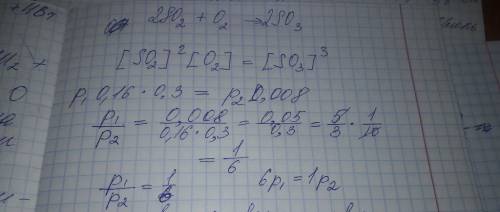 2SO₂ + O₂ → 2SO₃
[SO₂]² [O₂] = [SO₃]³
O p₁ 0,16 · 0,3 = p₂ 0,008
p₁/p₂ = 0,008/(0,16 · 0,3) = 0,05/0,3 = 5/3 · 1/10
= 1/6
p₁/p₂ = 1/6 6p₁ = 1p₂